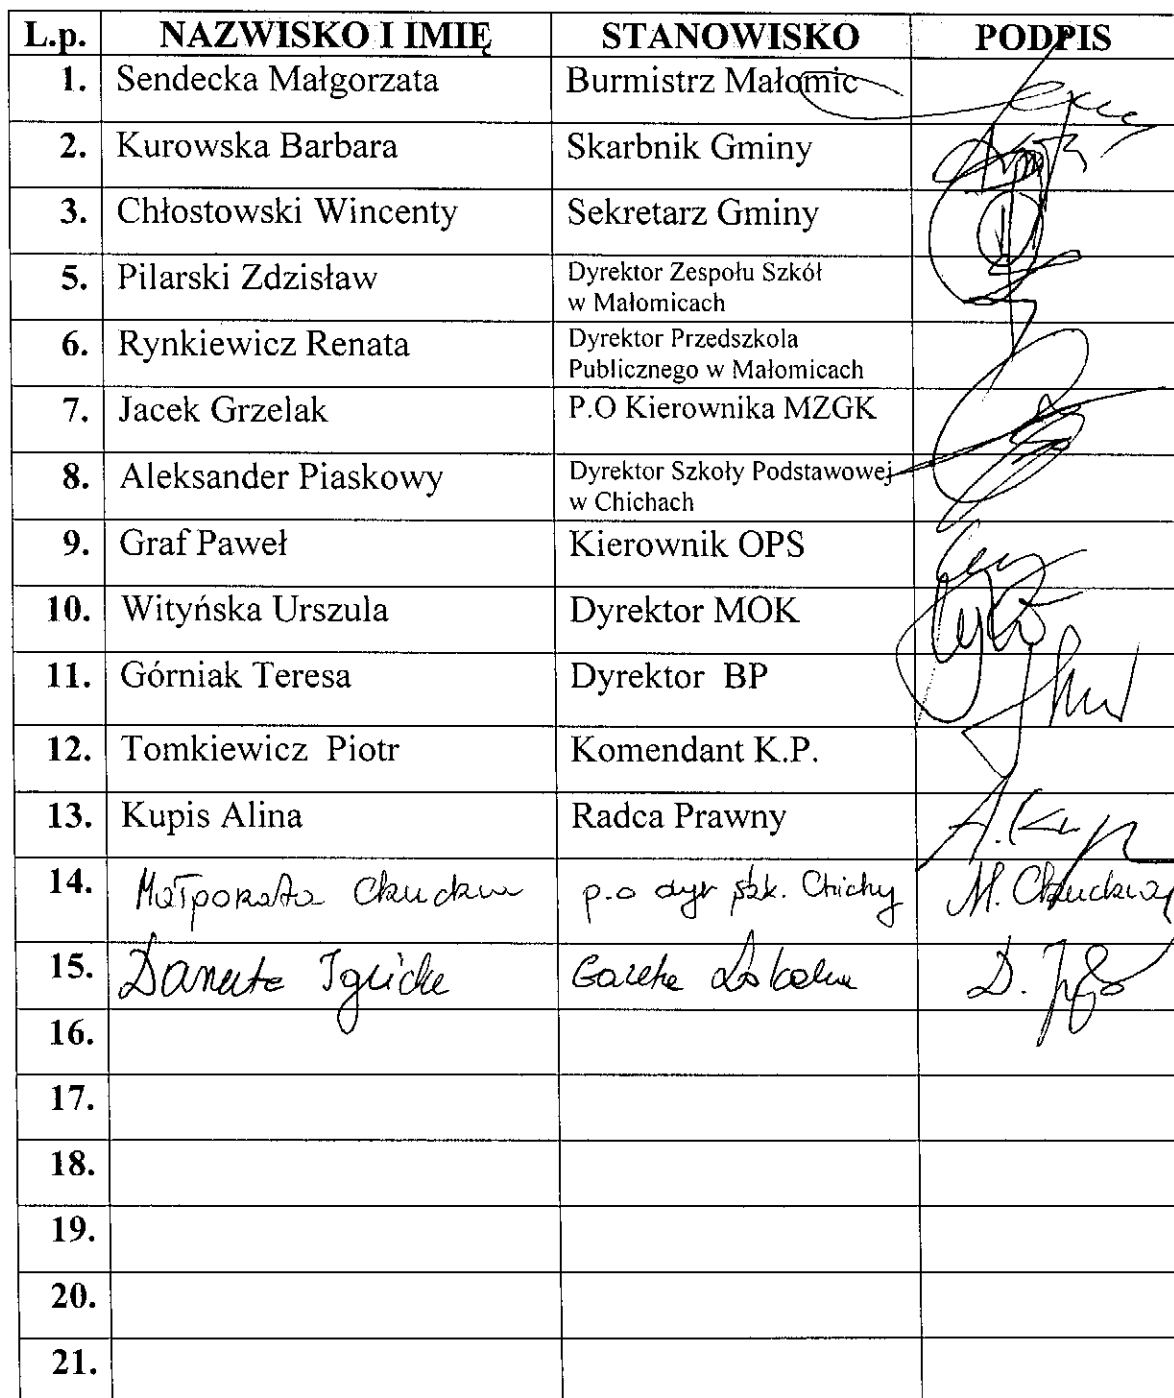 L.p. NAZWISKO I IMIĘ STANOWISKO PODPIS
1. Sendecka Małgorzata Burmistrz Małomic
2. Kurowska Barbara Skarbnik Gminy
3. Chłostowski Wincenty Sekretarz Gminy
5. Pilarski Zdzisław Dyrektor Zespołu Szkół
w Małomicach
6. Rynkiewicz Renata Dyrektor Przedszkola
Publicznego w Małomicach
7. Jacek Grzelak P.O Kierownika MZGK
8. Aleksander Piaskowy Dyrektor Szkoły Podstawowej
w Chichach
9. Graf Paweł Kierownik OPS
10. Wityńska Urszula Dyrektor MOK
11. Górniak Teresa Dyrektor BP
12. Tomkiewicz Piotr Komendant K.P.
13. Kupis Alina Radca Prawny
14. Małgorzata p.o dyr szk. Chichy M.
15. Danuta Gazeta Lokalna D.
16.
17.
18.
19.
20.
21.